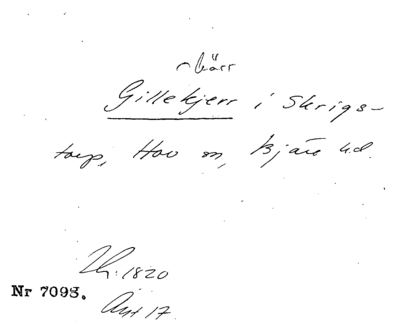 ~kärr
Gillekjerr i Skrigs-
torp, Hov sn, Bjäre hd.
Lh: 1820
Nr 7093.
Akt 17.